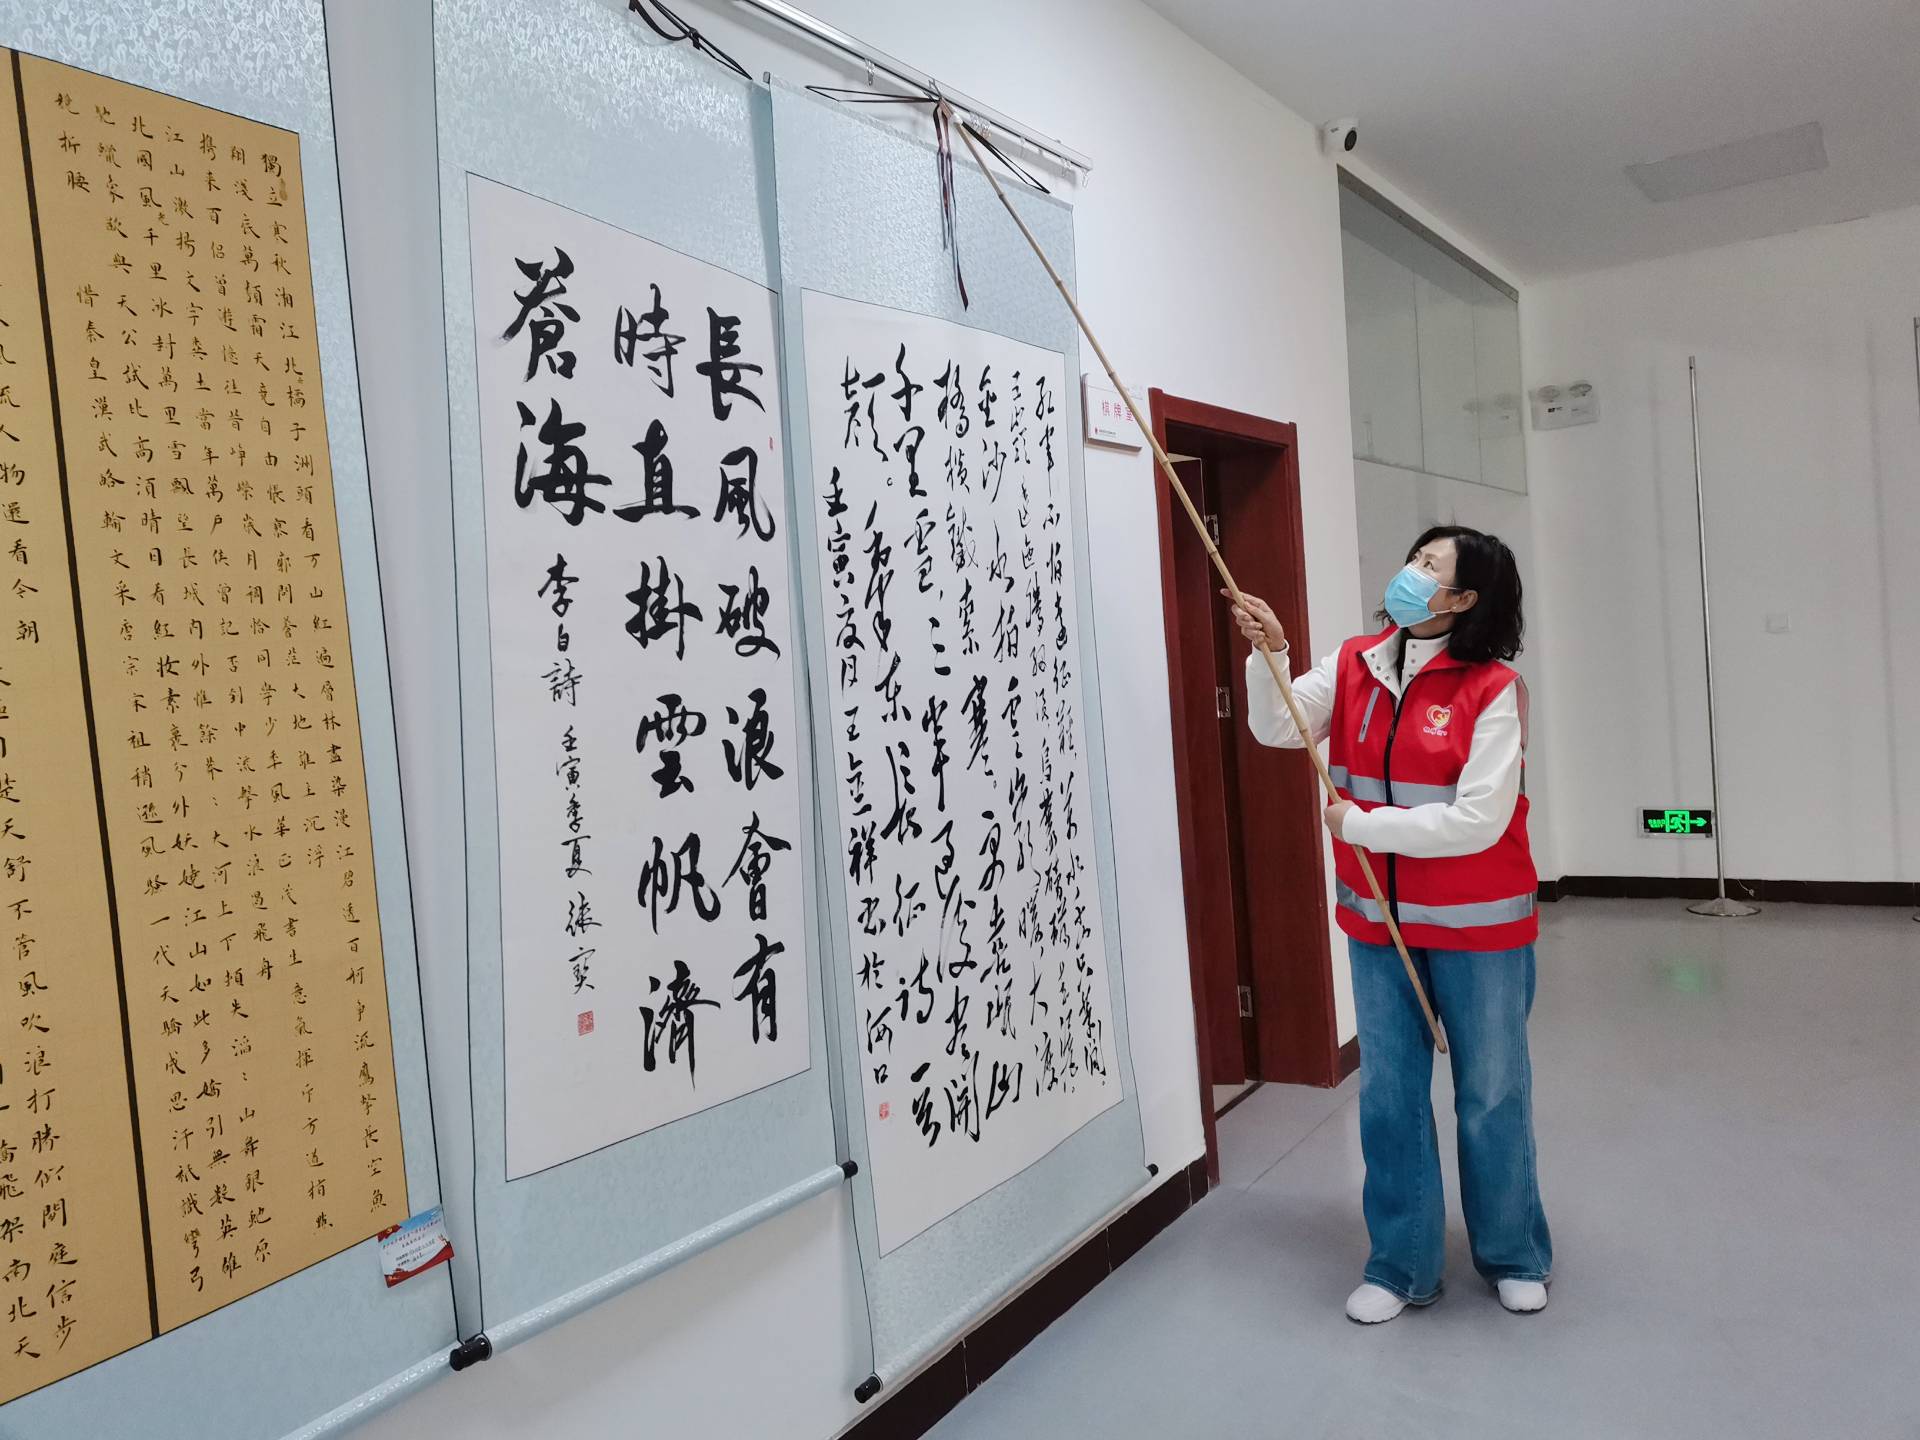 獨立寒秋湘江北橘子洲頭看万山紅遍層林盡染漫江碧透百舸爭流鷹擊長空魚
翔淺底萬類霜天竞自由悵寥廓問蒼茫大地誰主沉浮
携来百侣曾遊憶往昔崢嶸歲月稠恰同學少年風華正茂書生意氣揮斥方遒指點
江山激揚文字糞土當年萬戶侯曾記否到中流擊水浪遏飛舟
北國風光千里冰封萬里雪飄望長城内外惟餘莽:大河上下頓失滔:山舞銀蛇原
馳蠟象欲與天公試比高須晴日看紅妆素裹分外妖嬈江山如此多嬌引無數英雄
競折腰 惜秦皇漢武略輸文采唐宗宋祖稍遜風騷一代天驕成吉思汗祗識彎弓
風流人物還看今朝
楚天舒不管風吹浪打勝似閒庭信步
橋飛架南北天
長風破浪會有
時直掛雲帆濟
蒼海 李白詩 壬寅季夏 張寶
紅軍不怕遠征難萬水千山只等閒
五嶺逶迤騰細浪烏蒙磅礴走泥丸
金沙水拍雲崖暖大渡
橋橫鐵索寒。更喜岷山
千里雪三軍過後盡開
顏。毛澤東長征詩一首
壬寅夏月王金祥書於海口
棋牌室